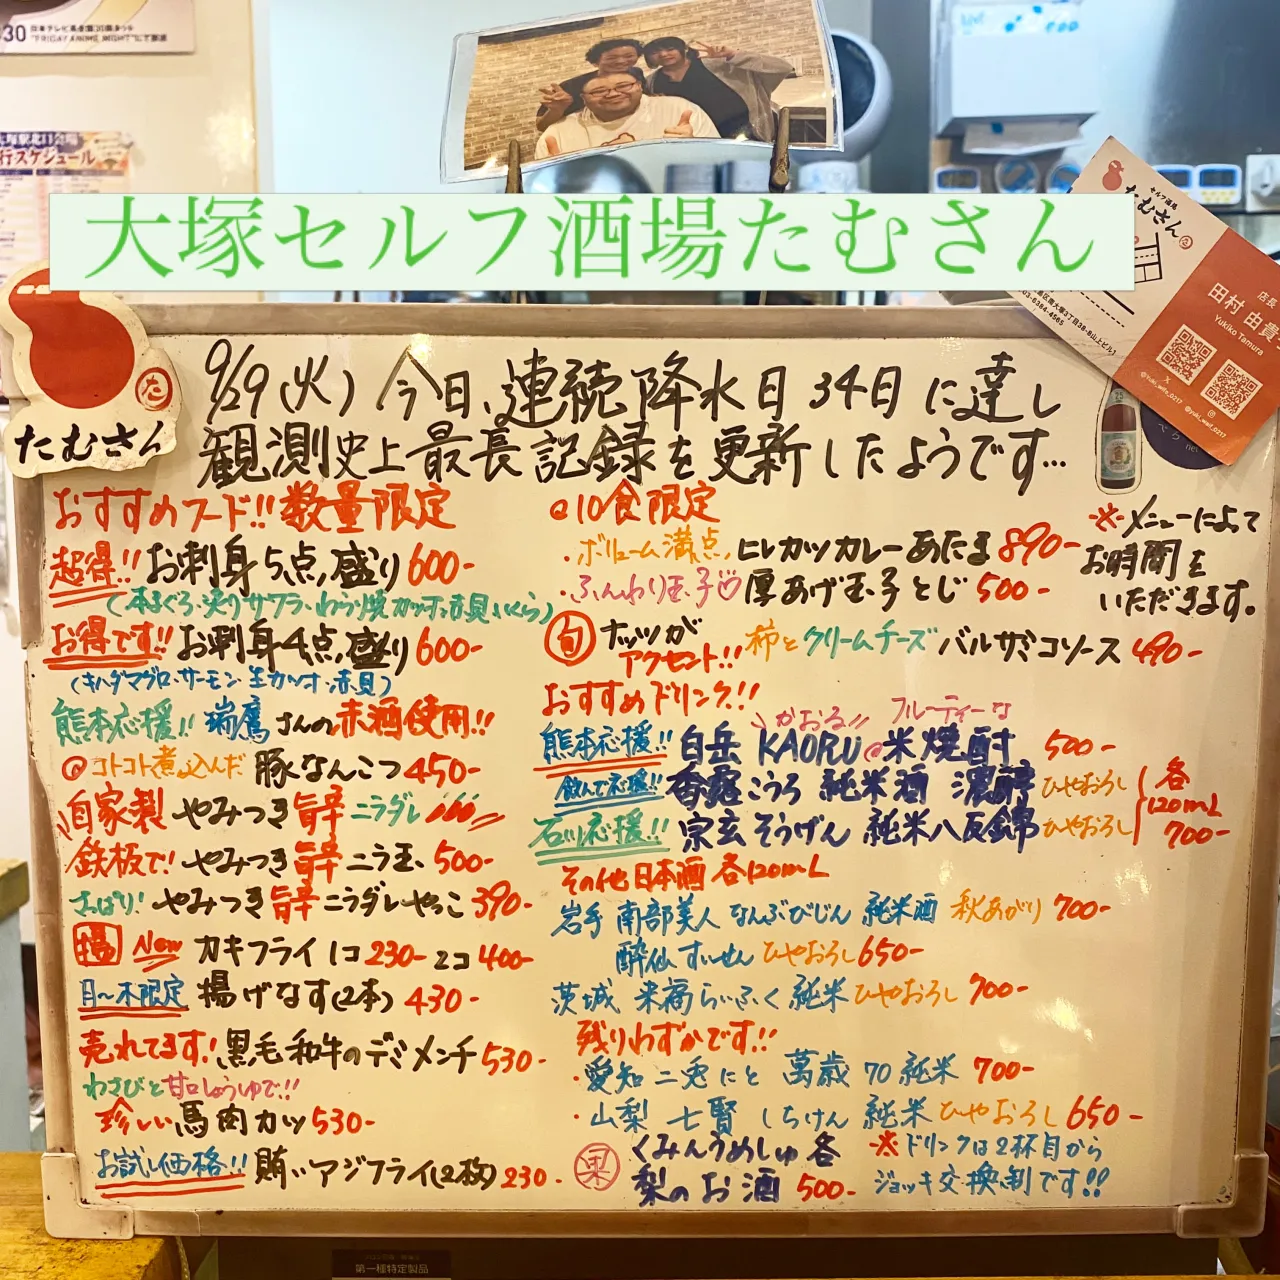 大塚セルフ酒場たむさん
セルフ酒場
たむさん
店長
Yukiko Tamura
03-6384-4565
たむさん
9/29(火) 今日、連続降水日34日に達し
観測史上最長記録を更新したようです…
おすすめフード!! 数量限定
超得!! お刺身5点盛り 600-
(本まぐろ・炙りサワラ・わら焼カツオ・赤貝・いくら)
お得です!! お刺身4点盛り 600-
(キハダマグロ・サーモン・生カツオ・赤貝)
熊本応援!! 瑞鷹さんの赤酒使用!!
コトコト煮込んだ 豚なんこつ 450-
自家製 やみつき旨辛ニラダレ
鉄板で! やみつき旨辛ニラ玉 500-
さっぱり! やみつき旨辛ニラダレやっこ 390-
揚 New カキフライ 1コ 230- 2コ 400-
月〜木限定 揚げなす(2本) 430-
売れてます! 黒毛和牛のデミメンチ 530-
わさびと甘口しょうゆで!!
珍しい馬肉カツ 530-
お試し価格!! 賄いアジフライ(2枚) 230-
10食限定
・ボリューム満点、ヒレカツカレーあたま 890-
・ふんわり玉子♡厚あげ玉子とじ 500-
※メニューによって
お時間を
いただきます。
旬 ナッツが
アクセント!! 柿とクリームチーズ バルサミコソース 490-
おすすめドリンク!!
かおる!! フルーティーな
熊本応援!! 白岳 KAORU 米焼酎 500-
飲んで応援!! 香露 こうろ 純米酒 濃醇 ひやおろし
石川応援!! 宗玄 そうげん 純米八反錦 ひやおろし
各
120mL
700-
その他日本酒 各120mL
岩手 南部美人 なんぶびじん 純米酒 秋あがり 700-
酔仙 すいせん ひやおろし 650-
茨城 来福 らいふく 純米 ひやおろし 700-
残りわずかです!!
・愛知 二兎 にと 萬歳 70 純米 700-
・山梨 七賢 しちけん 純米 ひやおろし 650-
果 くみんうめしゅ 各
梨のお酒 500-
※ドリンクは2杯目から
ジョッキ交換制です!!
第一種特定製品